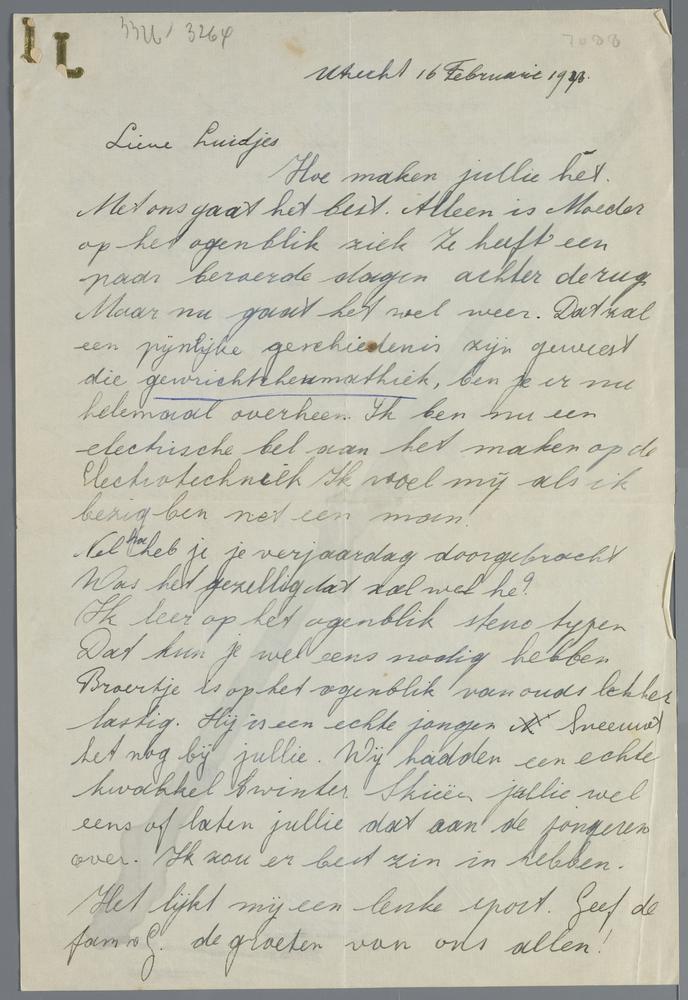 3326/ 3264
7088
Utrecht 16 Februarie
Lieve Luidjes
Hoe maken jullie het.
Met ons gaat het best. Alleen is Moeder
op het ogenblik ziek Ze heeft een
paar beroerde dagen achter de rug
Maar nu gaat het wel weer. Dat zal
een pijnlijke geschiedenis zijn geweest
die gewrichtsrheumathiek, ben je er nu
helemaal overheen. Ik ben nu een
electrische bel aan het maken op de
Electrotechniek Ik voel mij als ik
bezig ben net een man!
Nel hoe heb je je verjaardag doorgebracht
Was het gezellig dat zal wel he?
Ik leer op het ogenblik steno typen
Dat kun je wel eens nodig hebben
Broertje is op het ogenblik van ouds lekker
lastig. Hij is een echte jongen Sneeuwt
het nog bij jullie. Wij hadden een echte
kwakkel winter Skiën jullie wel
eens of laten jullie dat aan de jongeren
over. Ik zou er best zin in hebben.
Het lijkt mij een leuke sport. Geef de
fam v G. de groeten van ons allen!